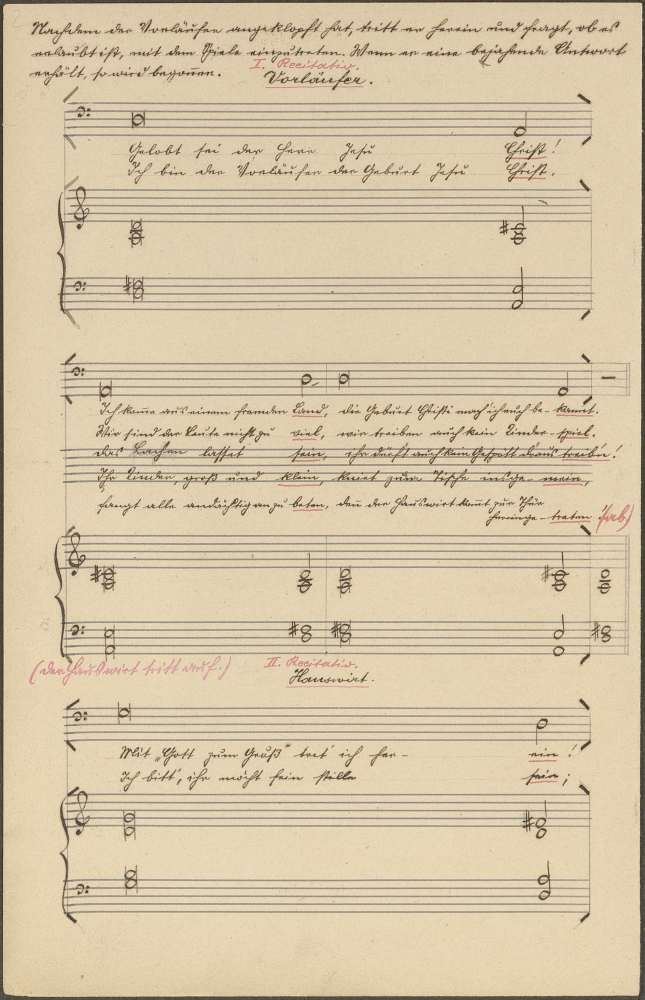 Nachdem der Vorläufer angeklopft hat, tritt er herein und fragt, ob es
erlaubt ist, mit dem Spiele einzutreten. Wenn er eine bejahende Antwort
erhält, so wird begonnen.
I. Recitativ.
Vorläufer.
Gelobt sei der Herr Jesu Christ!
Ich bin der Vorläufer der Geburt Jesu Christ.
Ich komme aus einem fremden Land, die Geburt Christi mach' ich euch be- kannt.
Wir sind der Leute nicht zu viel, wir treiben auch kein Kinder- spiel.
das Lachen lasset sein, ihr dürft auch kein Gespött draus treib'n!
Ihr Kinder, groß und klein, kniet zum Tische insge- mein,
fangt alle andächtig an zu beten, denn der Hauswirt kommt zur Thür
hereinge- treten! (ab)
(der Hauswirt tritt auf.)
II. Recitativ.
Hauswirt.
Mit „Gott zum Gruß" tret' ich her- ein!
Ich bitt', ihr möcht fein stille sein;